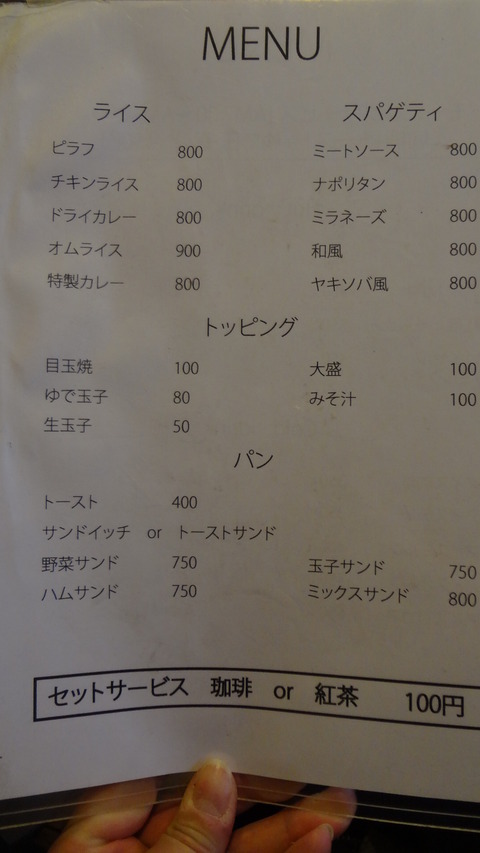 MENU
ライス スパゲティ
ピラフ 800 ミートソース 800
チキンライス 800 ナポリタン 800
ドライカレー 800 ミラネーズ 800
オムライス 900 和風 800
特製カレー 800 ヤキソバ風 800
トッピング
目玉焼 100 大盛 100
ゆで玉子 80 みそ汁 100
生玉子 50
パン
トースト 400
サンドイッチ or トーストサンド
野菜サンド 750 玉子サンド 750
ハムサンド 750 ミックスサンド 800
セットサービス 珈琲 or 紅茶 100円